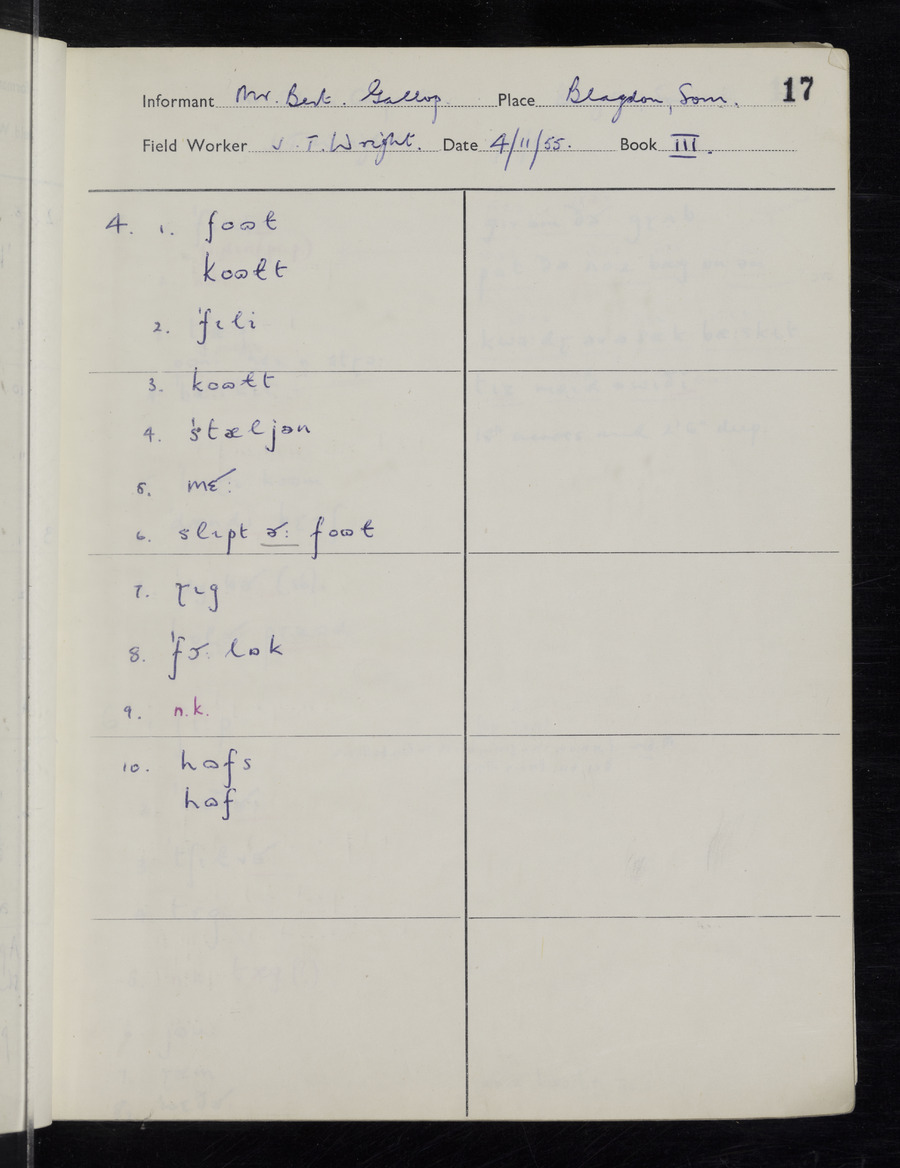 17
Informant Mr. Bert. Gallop. Place Blagdon, Som.
Field Worker J. T. Wright. Date 4/11/55. Book III.
4. 1. foət
koəɫt
2. ˈfɪli
3. koəɫt
4. ˈstæljən
5. mɛ˞:
6. slɪpt ɚ: foət
7. ɽɪg
8. ˈfɚ: lɒk
9. n.k.
10. hɒfs
hɒf